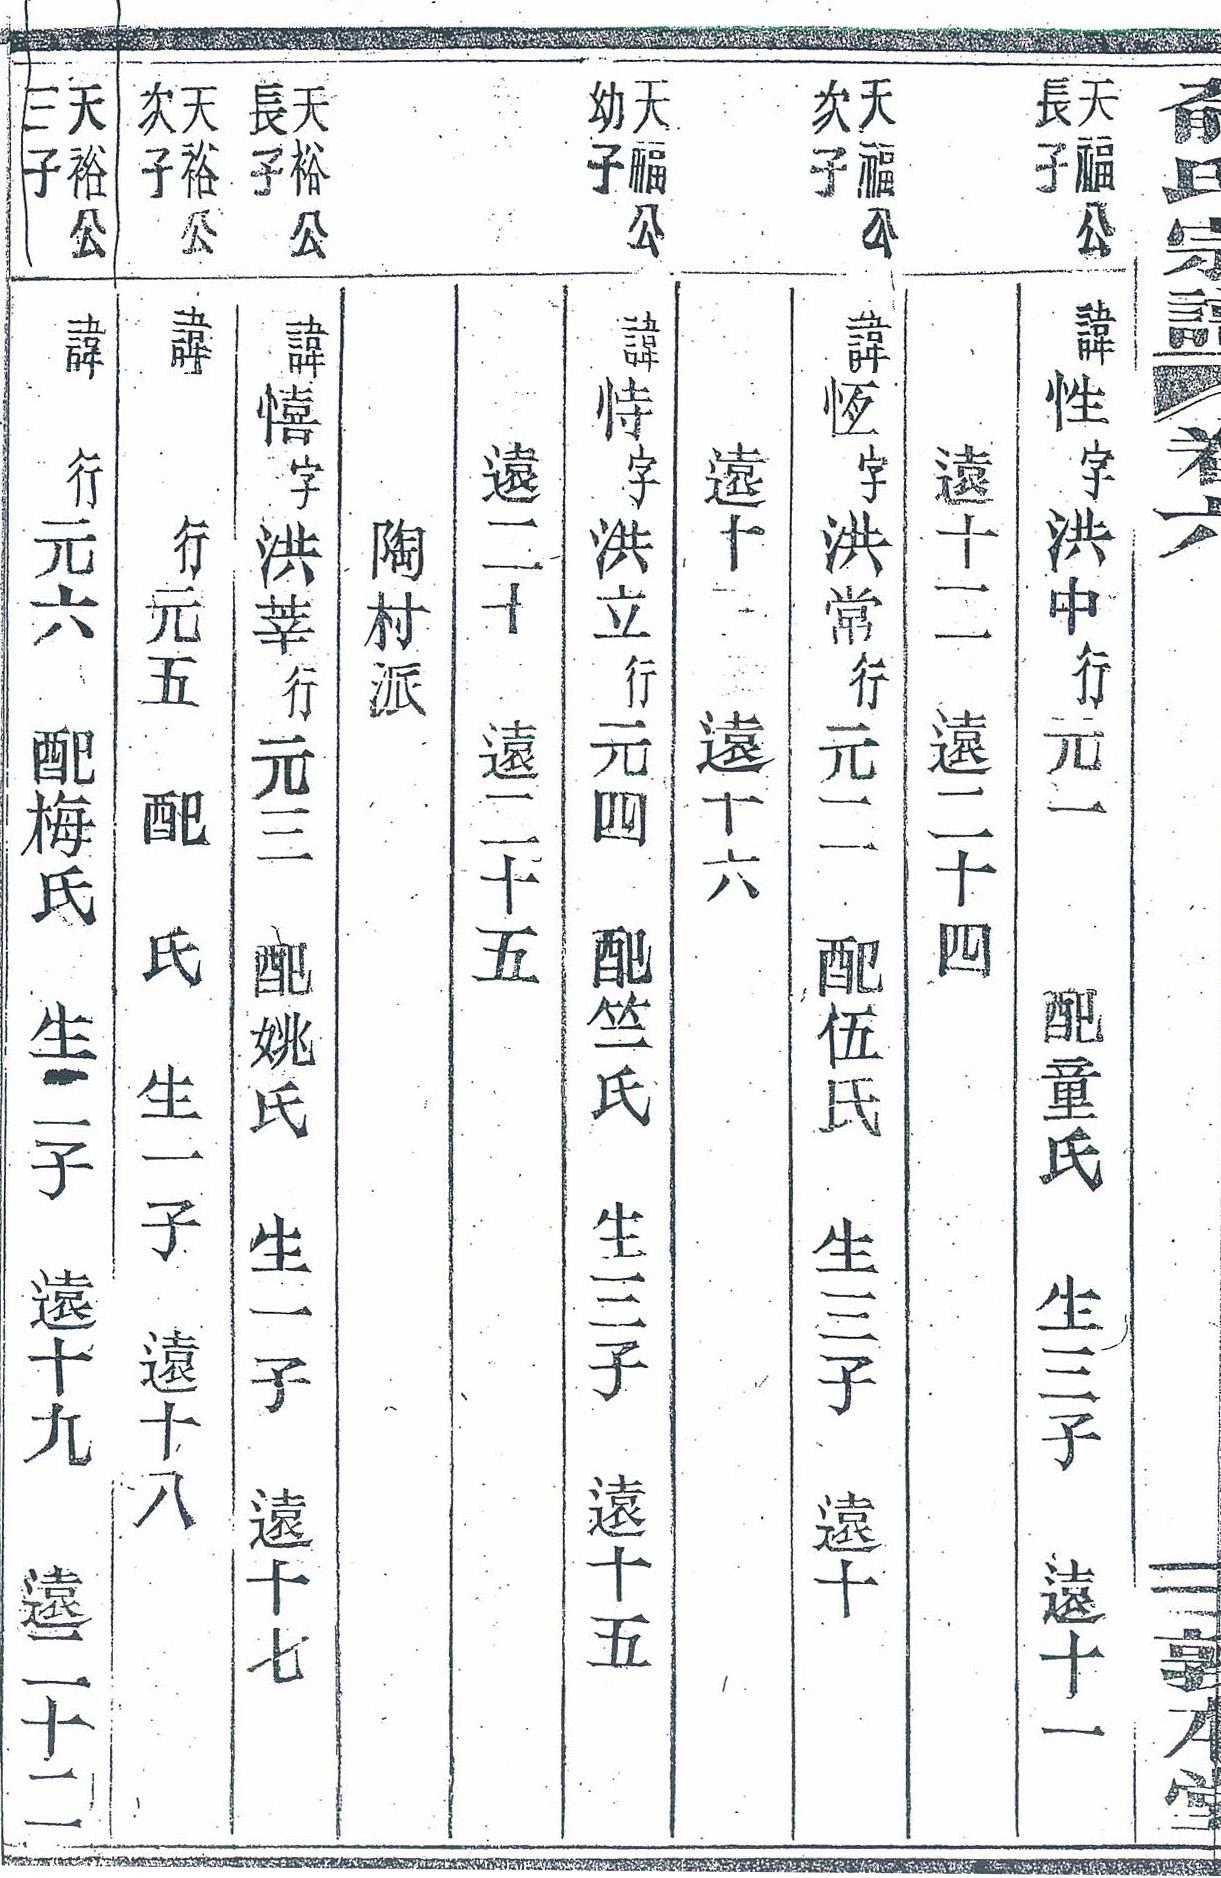 俞氏宗譜 卷六 三 敦本堂
天福公
長子
諱性字洪中行元一 配童氏 生三子 遠十一
遠十二 遠二十四
天福公
次子
諱恆字洪常行元二 配伍氏 生三子 遠十
遠十 遠十六
天福公
幼子
諱恃字洪立行元四 配竺氏 生三子 遠十五
遠二十 遠二十五
陶村派
天裕公
長子
諱憘字洪莘行元三 配姚氏 生一子 遠十七
天裕公
次子
諱 行元五 配 氏 生一子 遠十八
天裕公
三子
諱 行元六 配梅氏 生二子 遠十九 遠二十二